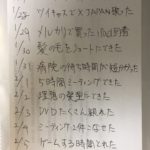 1/28 ツイキャスでX JAPAN歌った
1/29 メルカリで買ったiPod到着
1/30 髪の毛をショートにできた
1/31 病院の待ち時間が短かった
2/1 5時間ミーティングできた
2/2 理想の髪型にできた
2/3 DVDたくさん観れた
2/4 ミーティング2件こなせた
2/5 ゲームする時間とれた